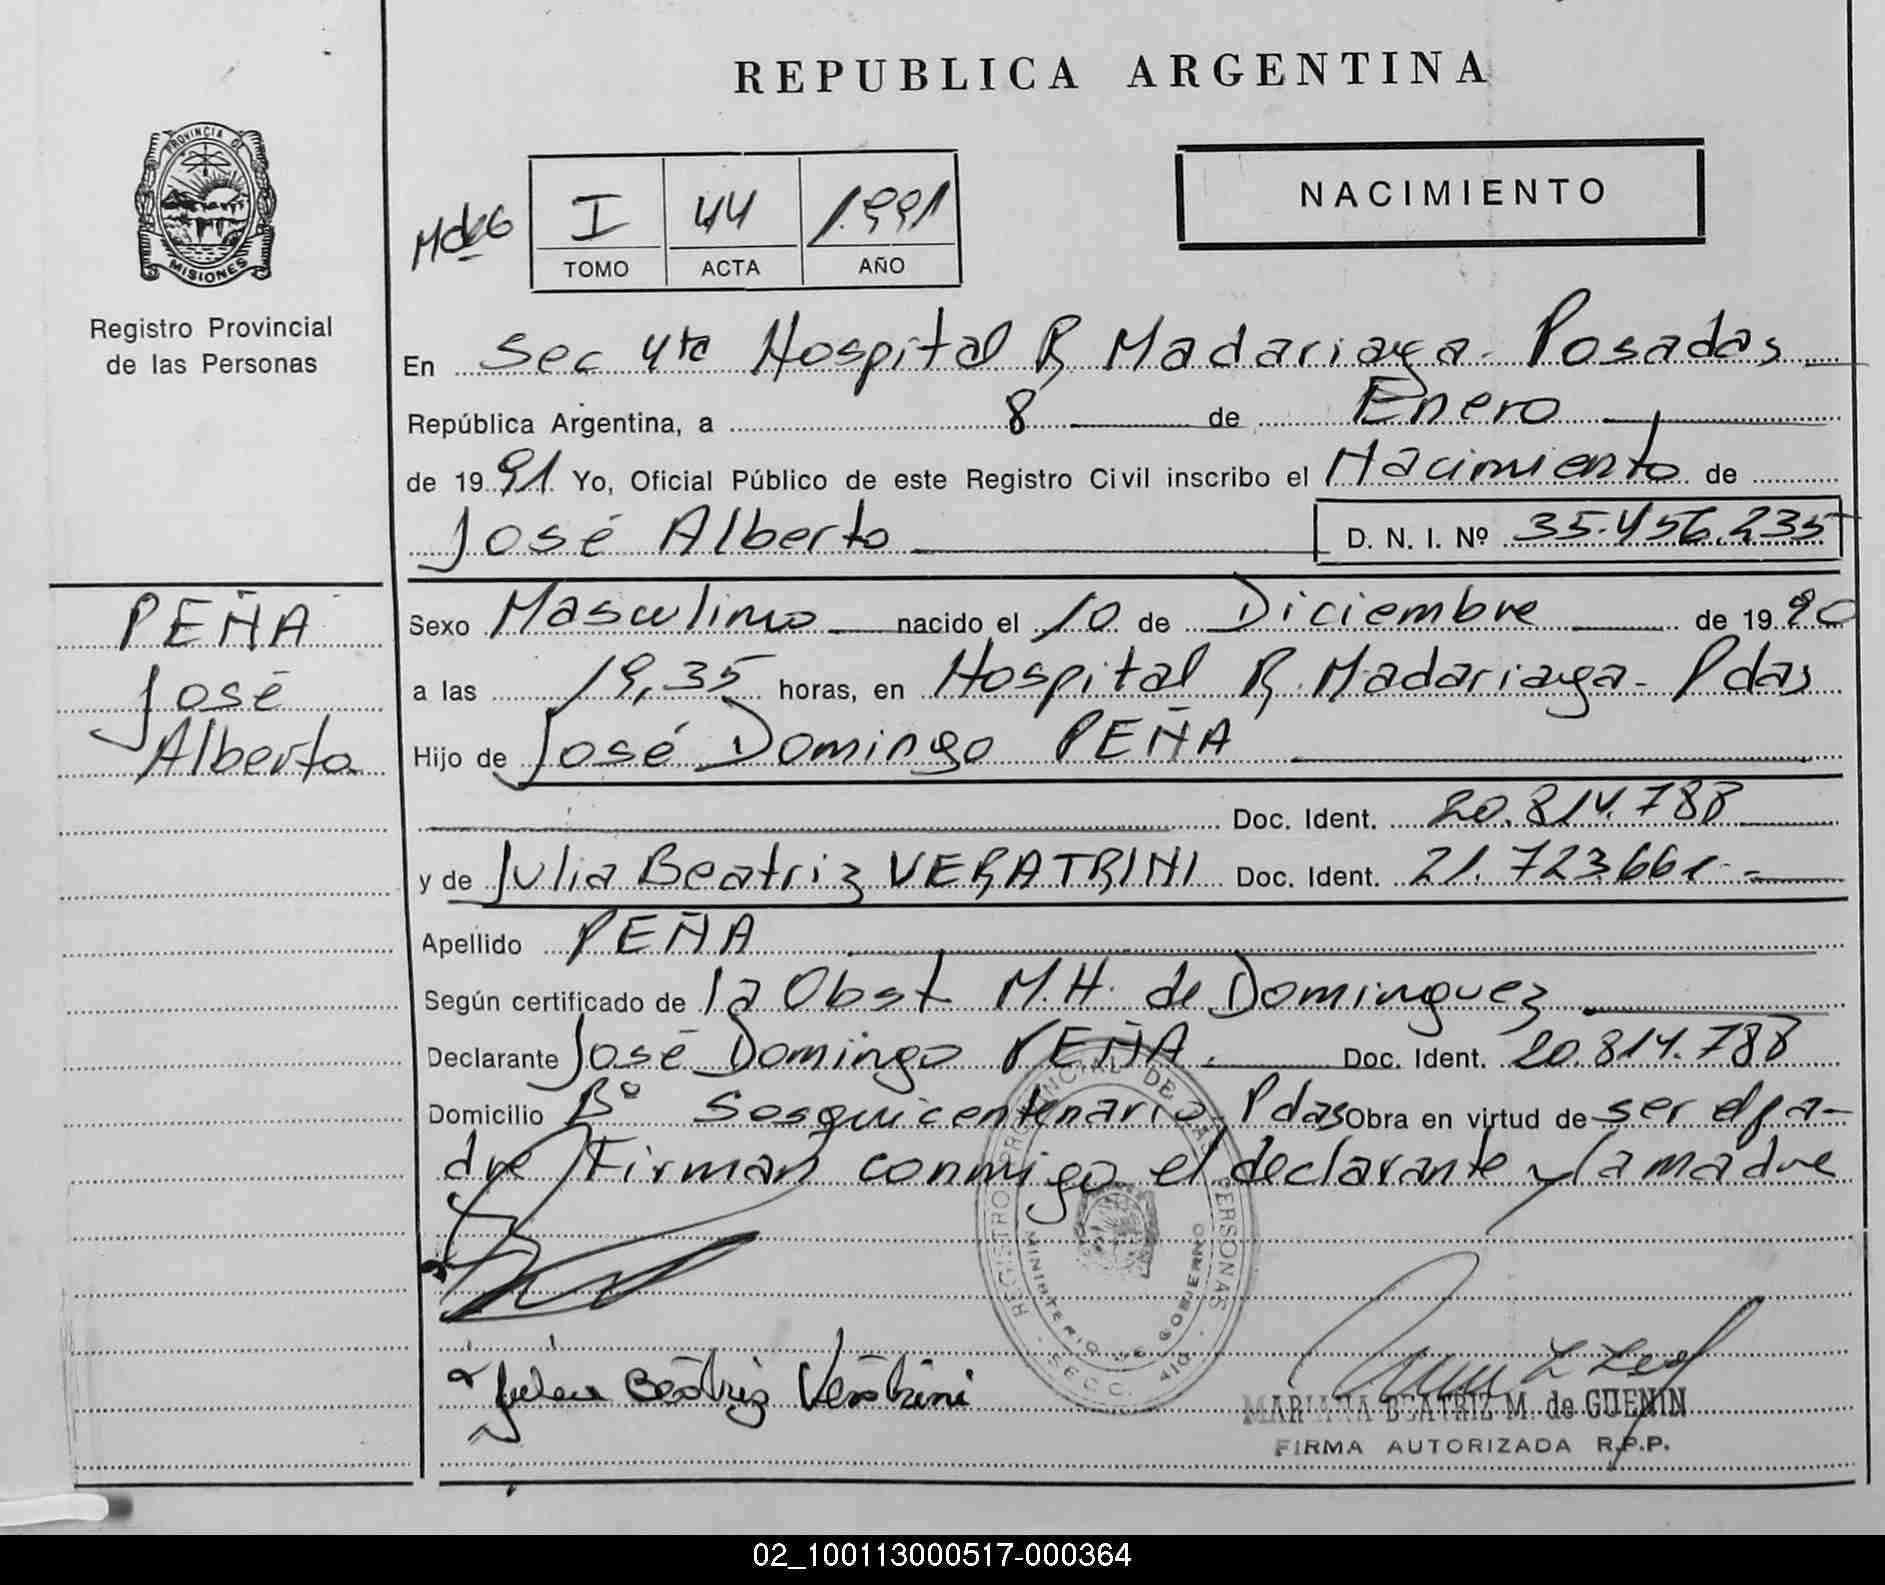 REPUBLICA ARGENTINA
PROVINCIA DE
MISIONES
Registro Provincial
de las Personas
MdeG
I 44 1.991
TOMO ACTA AÑO
NACIMIENTO
En Sec 4ta Hospital R. Madariaga - Posadas
República Argentina, a 8 de Enero
de 1991 Yo, Oficial Público de este Registro Civil inscribo el Nacimiento de
José Alberto D. N. I. Nº 35.456.235
PEÑA
José
Alberto
Sexo Masculino nacido el 10 de Diciembre de 1990
a las 19,35 horas, en Hospital R. Madariaga - Pdas
Hijo de José Domingo PEÑA
Doc. Ident. 20.814.788
y de Julia Beatriz VERATRINI Doc. Ident. 21.723.661.-
Apellido PEÑA
Según certificado de la Obst M.H. de Dominguez
Declarante José Domingo PEÑA. Doc. Ident. 20.814.788
Domicilio Bº Sosquicentenario, Pdas Obra en virtud de ser el pa-
dre Firman conmigo el declarante y la madre
REGISTRO PROVINCIAL DE LAS PERSONAS
MINISTERIO DE GOBIERNO
SECC.
Beatriz Veratrini
MARIANA BEATRIZ M. de GUENIN
FIRMA AUTORIZADA R.P.P.
02_100113000517-000364